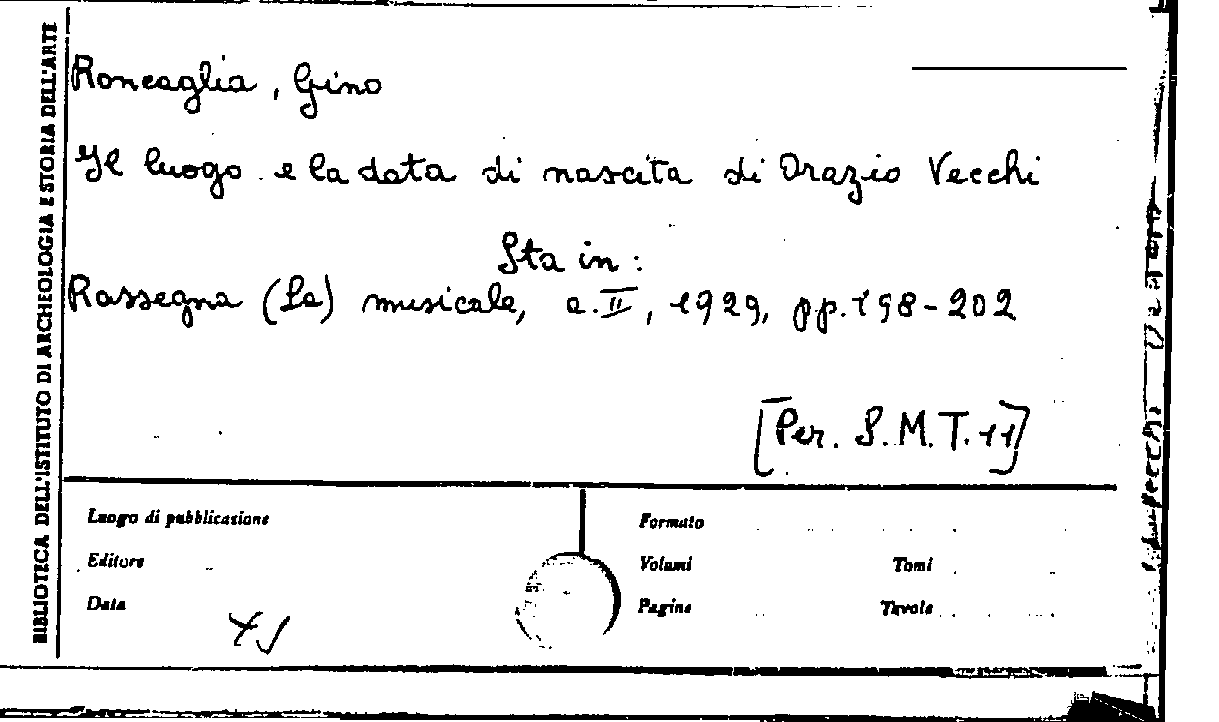 BIBLIOTECA DELL'ISTITUTO DI ARCHEOLOGIA E STORIA DELL'ARTE
Roncaglia, Gino
Il luogo e la data di nascita di Orazio Vecchi
Sta in:
Rassegna (La) musicale, a. II, 1929, pp. 198-202
[Per. S. M. T. 11]
Luogo di pubblicazione
Formato
Editore
Volumi
Tomi
Data
Pagine
Tavole